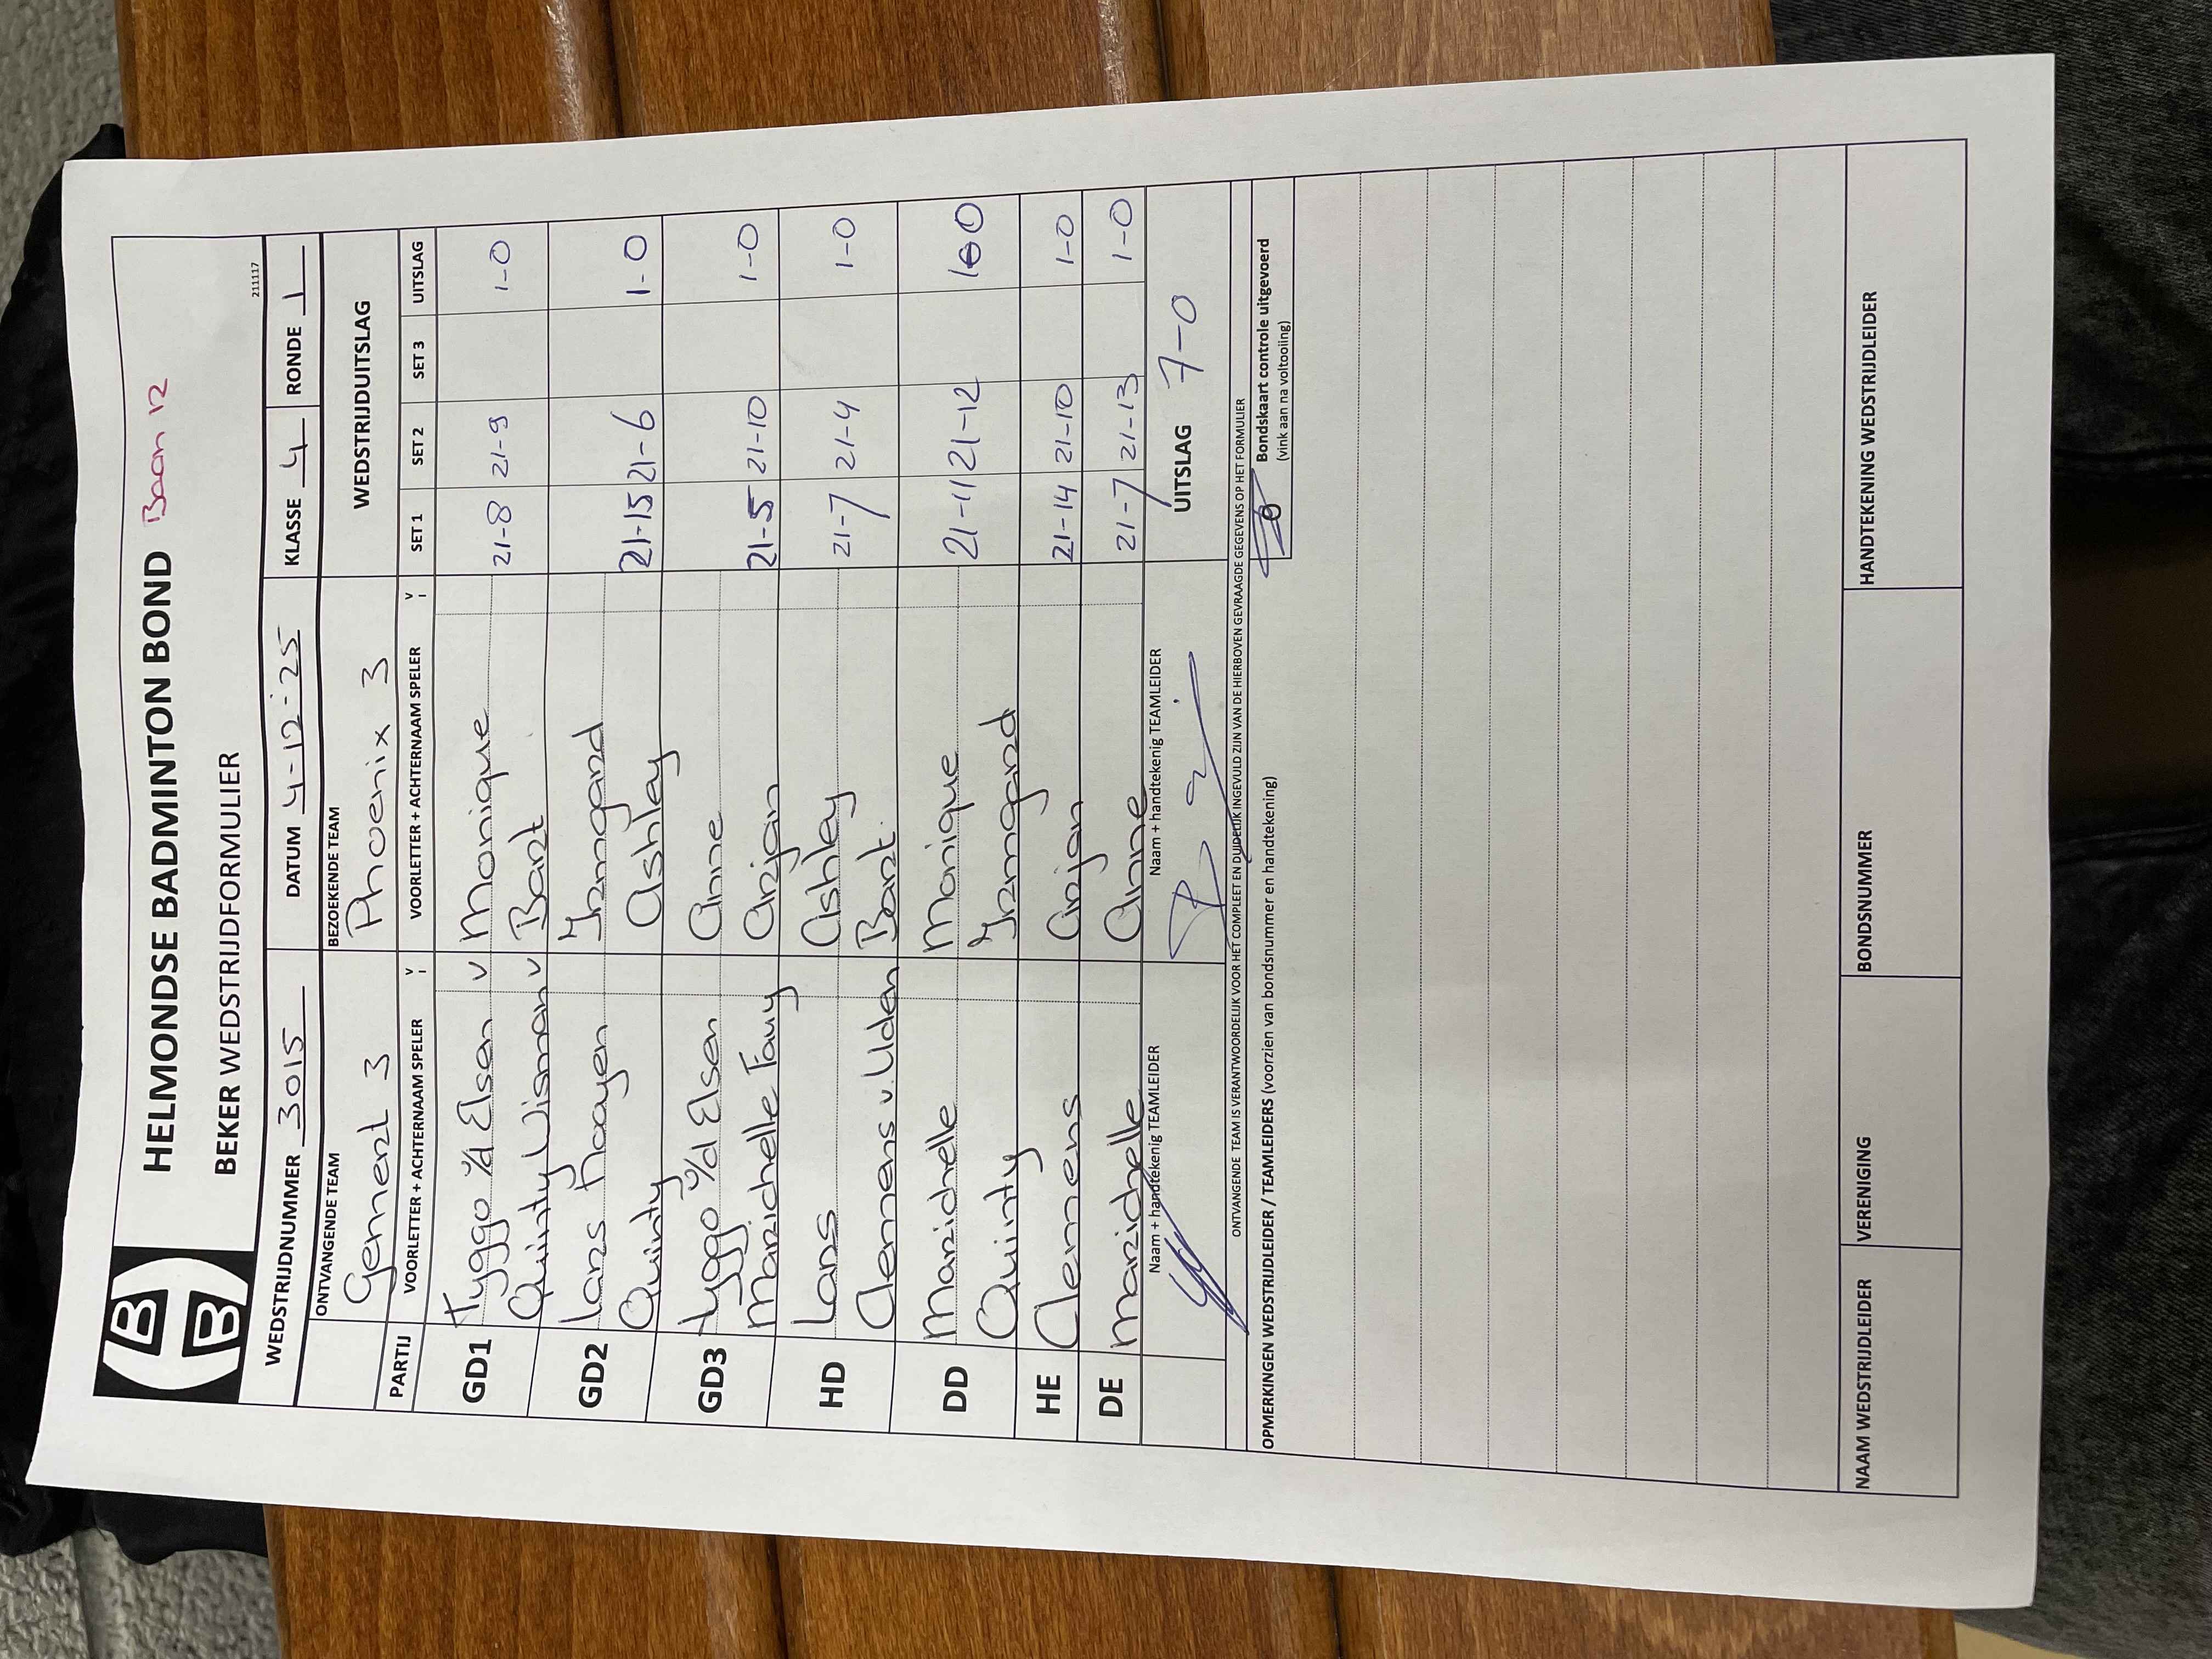 HELMONDSE BADMINTON BOND Baan 12
BEKER WEDSTRIJDFORMULIER
211117
WEDSTRIJDNUMMER 3015 DATUM 4-12-25 KLASSE 4 RONDE 1
ONTVANGENDE TEAM BEZOEKENDE TEAM WEDSTRIJDUITSLAG
Gemert 3 Phoenix 3
PARTIJ VOORLETTER + ACHTERNAAM SPELER V I VOORLETTER + ACHTERNAAM SPELER V I SET 1 SET 2 SET 3 UITSLAG
GD1 Tyggo v/d Elsen v Monique 21-8 21-9 1-0
Quinty Wisman v Bart
GD2 Lars Irmgard 21-15 21-6 1-0
Quinty Ashley
GD3 tyggo v/d Elsen Anne 21-5 21-10 1-0
Marichelle Arjan
HD Lars Ashley 21-7 21-4 1-0
Clemens v. Uden Bart.
DD Marichelle Monique 21-11 21-12 1-0
Quinty Irmgard
HE Clemens Arjan 21-14 21-10 1-0
DE Marichelle Anne 21-7 21-13 1-0
Naam + handtekenig TEAMLEIDER Naam + handtekenig TEAMLEIDER UITSLAG 7-0
ONTVANGENDE TEAM IS VERANTWOORDELIJK VOOR HET COMPLEET EN DUIDELIJK INGEVULD ZIJN VAN DE HIERBOVEN GEVRAAGDE GEGEVENS OP HET FORMULIER
OPMERKINGEN WEDSTRIJDLEIDER / TEAMLEIDERS (voorzien van bondsnummer en handtekening) Bondskaart controle uitgevoerd
(vink aan na voltooiing)
NAAM WEDSTRIJDLEIDER VERENIGING BONDSNUMMER HANDTEKENING WEDSTRIJDLEIDER